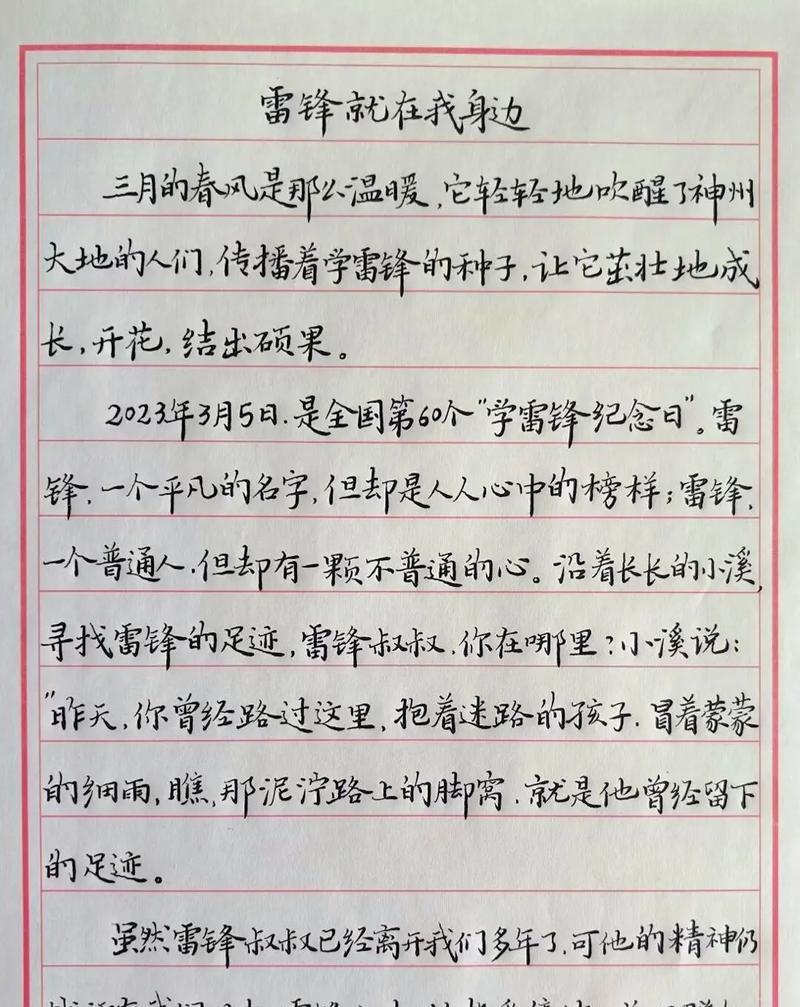 雷锋就在我身边
三月的春风是那么温暖，它轻轻地吹醒了神州
大地的人们，传播着学雷锋的种子，让它茁壮地成
长，开花，结出硕果。
2023年3月5日.是全国第60个"学雷锋纪念日"。雷
锋.一个平凡的名字，但却是人人心中的榜样；雷锋.
一个普通人.但却有一颗不普通的心。沿着长长的小溪，
寻找雷锋的足迹，雷锋叔叔.你在哪里？小溪说：
"昨天，你曾经路过这里，抱着迷路的孩子.冒着蒙蒙
的细雨，瞧，那泥泞路上的脚窝.就是他曾经留下
的足迹。
虽然雷锋叔叔已经离开我们多年了.可他的精神仍